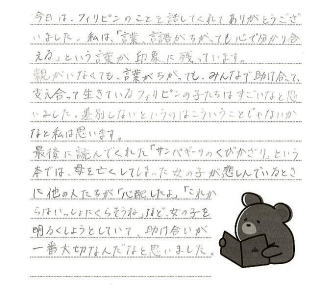 今日は、フィリピンのことを話してくれてありがとうござ
いました。私は、「言葉、言語がちがっても心で分かり合
える」という言葉が印象に残っています。
親がいなくても、言葉がちがっても、みんなで助け合って、
支え合って生きているフィリピンの子たちはすごいなと思
いました。差別しないというのはこういうことじゃないか
なと私は思います。
最後に読んでくれた「サンパギータのくびかざり」という
本では、母を亡くしてしまった女の子が悲しんでいるとき
に他の人たちが「心配したよ。」「これか
らはいっしょにくらそうね」など、女の子を
明るくしようとしていて、助け合いが
一番大切なんだなと思いました。